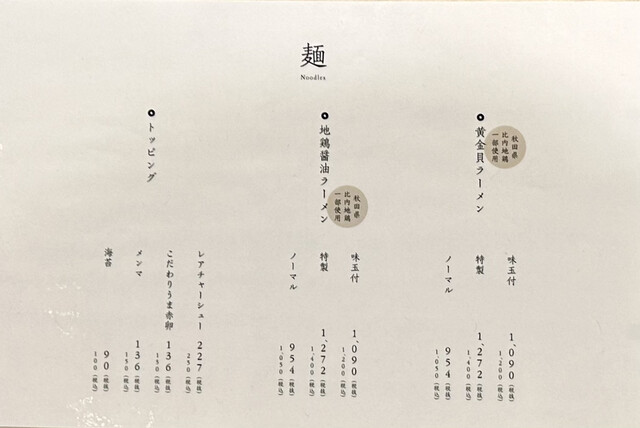 麺
Noodles
黄金貝ラーメン
秋田県
比内地鶏
一部使用
味玉付 1,090(税抜)
1,200(税込)
特製 1,272(税抜)
1,400(税込)
ノーマル 954(税抜)
1,050(税込)
地鶏醤油ラーメン
秋田県
比内地鶏
一部使用
味玉付 1,090(税抜)
1,200(税込)
特製 1,272(税抜)
1,400(税込)
ノーマル 954(税抜)
1,050(税込)
トッピング
レアチャーシュー 227(税抜)
250(税込)
こだわりうま赤卵 136(税抜)
150(税込)
メンマ 136(税抜)
150(税込)
海苔 90(税抜)
100(税込)